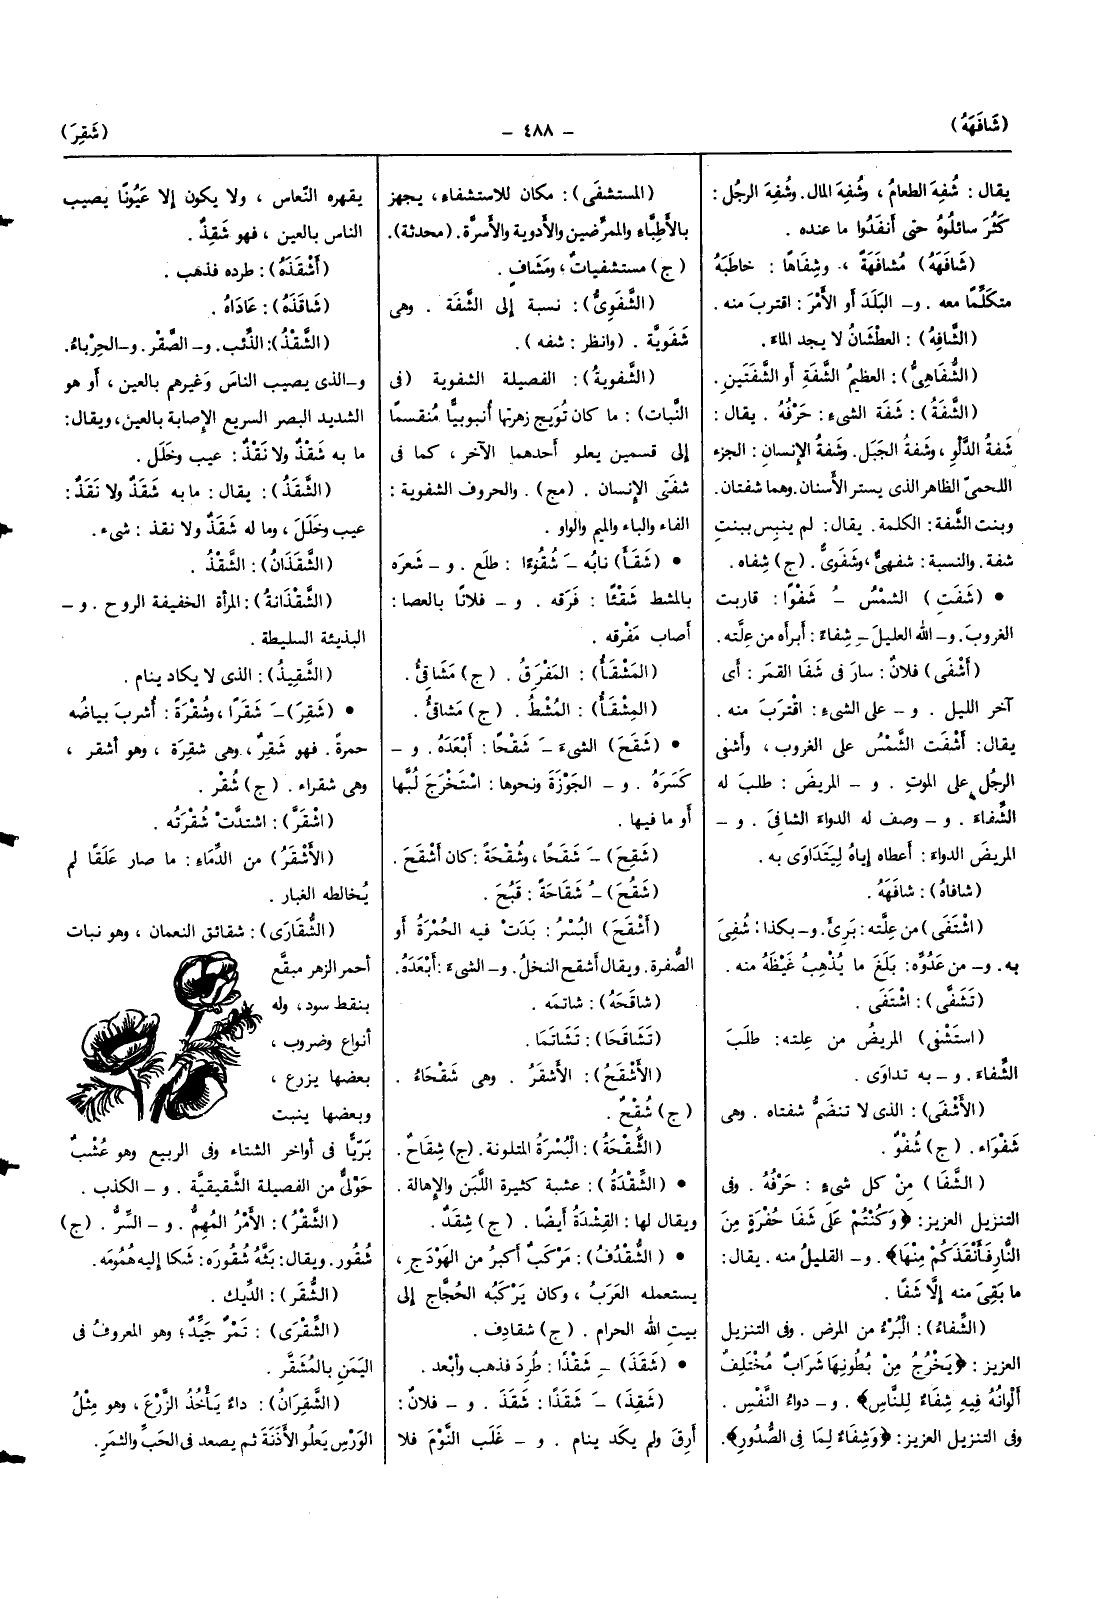 (شَافَهَهُ)
– ٤٨٨ –
(شَقِرَ)
يقال : شُفِهَ الطعامُ ، وشُفِهَ المال. وشُفِهَ الرجُل :
كَثُرَ سائلُوهُ حتى أَنفَدُوا ما عنده .
(شَافَهَهُ) مُشافَهَةً ، وشِفَاهًا : خاطَبَهُ
متكَلِّمًا معه . و– البَلَدَ أَو الأَمْرَ : اقتربَ منه .
(الشَّافِهُ) : العطْشَانُ لا يجد الماءَ .
(الشُّفَاهِىُّ) : العظيمُ الشَّفَةِ أَو الشَّفَتَينِ .
(الشَّفَةُ) : شَفَة الشىءِ : حَرْفُهُ . يقال :
شَفةُ الدَّلْوِ ، وشَفةُ الجَبَل. وشَفةُ الإنسانِ : الجزء
اللحمىّ الظاهر الذى يستر الأسنان. وهما شفتان.
وبنت الشَّفة: الكلمة. يقال: لم ينبِس ببنتِ
شفة. والنسبة: شفهىٌّ، وشَفَوىٌّ. (ج) شِفاه.
• (شَفَتِ) الشمْسُ ـُ شَفْوًا: قاربت
الغروبَ. و– الله العليلَ ـِ شِفاءً: أبرأه من عِلّته.
(أَشْفَى) فلانٌ: سارَ فى شَفَا القمَر: أى
آخر الليل . و – على الشىءِ: اقترَبَ منه .
يقال: أَشْفَت الشَّمْسُ على الغروب ، وأشفى
الرجُل على الموتِ . و – المريضَ : طلبَ له
الشِّفاءَ . و – وصف له الدواءَ الشافىَ . و –
المريضَ الدواءَ: أعطاه إياهُ لِيَتَدَاوَى به .
(شافاهُ) : شافَهَهُ .
(اشْتَفَى) من عِلَّته: بَرِئَ. و– بكذا: شُفِىَ
به. و– من عَدُوِّه: بَلَغَ ما يُذْهِبُ غَيْظَهُ منه .
(تَشَفَّى) : اشْتَفَى .
(استَشْفى) المريضُ من عِلته: طلَبَ
الشِّفاءَ . و – به تداوَى .
(الأَشْفَى) : الذى لا تنضَمُّ شفتاه . وهى
شَفْوَاء . (ج) شُفْوٌ .
(الشَّفَا) مِنْ كل شىءٍ : حَرْفُهُ . وفى
التنزيل العزيز: ﴿وَكُنْتُمْ عَلَى شَفَا حُفْرَةٍ مِنَ
النَّارِ فَأَنْقَذَكُمْ مِنْهَا﴾. و– القليلُ منه . يقال:
ما بَقِىَ منه إِلَّا شَفًا .
(الشِّفاءُ): البُرْءُ من المرض . وفى التنزيل
العزيز : ﴿يَخْرُجُ مِنْ بُطُونِهَا شَرَابٌ مُخْتَلِفٌ
أَلْوَانُهُ فِيهِ شِفَاءٌ لِلنَّاسِ﴾ . و– دواءُ النَّفْسِ .
وفى التنزيل العزيز: ﴿وَشِفَاءٌ لِمَا فِى الصُّدُورِ﴾.
(المستشفَى) : مكان للاستشفاء ، يجهز
بالأَطِبَّاءِ والممرِّضين والأَدوية والأَسرَّة. (محدثة).
(ج) مستشفياتٌ ؛ ومَشَافٍ .
(الشَّفَوِىُّ): نسبة إلى الشَّفَة . وهى
شَفَوِيَّة . (وانظر : شفه) .
(الشَّفوية): الفصيلة الشفوية (فى
النَّبات) : ما كان تُوَيج زهرتها أُنبوبيًّا مُنقسمًا
إلى قسمين يعلو أحدهما الآخر ، كما فى
شفتَى الإنسان . (مج) . والحروف الشفوية :
الفاء والباء والميم والواو .
• (شَقَأَ) نابُه ـَ شُقُوءًا : طلَع . و – شَعرَه
بالمشط شَقْئًا : فَرَقه . و – فلانًا بالعصا :
أصاب مَفْرِقه .
(المَشْقَأُ) : المَفْرَِقُ . (ج) مَشَاقِئُ .
(المِشْقَأُ) : المُشْطُ . (ج) مَشاقِئُ .
• (شَقَحَ) الشىءَ ـَ شَقْحًا : أَبْعَدَهُ . و –
كَسَرَهُ . و – الجَوْزَةَ ونحوها: اسْتَخْرَجَ لُبَّها
أَو ما فيها .
(شَقِحَ) ـَ شَقَحًا ، وشُقْحَةً : كان أَشْقَحَ .
(شَقُحَ) ـُ شَقَاحَةً : قَبُحَ .
(أَشْقَحَ) البُسْرُ : بَدَتْ فيه الحُمْرَةُ أَو
الصُّفرة. ويقال أَشقح النخلُ. و– الشىءَ : أَبْعَدَهُ.
(شاقَحَهُ) : شاتمه .
(تَشَاقَحَا) : تَشَاتَمَا .
(الأَشْقَحُ) : الأَشْقَرُ . وهى شَقْحَاءُ .
(ج) شُقْحٌ .
(الشُّقْحَةُ) : الْبُسْرَةُ المتلونة. (ج) شِقَاحٌ .
• (الشِّقْدَةُ) : عشبة كثيرة اللَّبَن والإهالة .
ويقال لها : القِشْدَةُ أيضًا . (ج) شِقَدٌ .
• (الشُّقْدُفُ): مَرْكَبٌ أكبرُ من الهَوْدَجِ ،
يستعمله العَرَبُ ، وكان يَرْكَبُه الحُجَّاج إلى
بيتِ الله الحرام . (ج) شقادِف .
• (شَقَذَ) ـِ شَقْذًا : طُرِدَ فذهب وأبْعد .
(شَقِذَ) ـَ شَقَذًا: شَقَذَ . و – فلانٌ:
أَرِقَ ولم يكد ينام . و – غَلَب النَّوْمَ فلا
يقهره النّعاس ، ولا يكون إلا عَيُونًا يصيب
الناس بالعين ، فهو شَقِذٌ .
(أَشْقَذَهُ) : طرده فذهب .
(شَاقَذَهُ) : عَادَاهُ .
(الشَّقْذُ): الذِّئب. و– الصَّقْر. و–الحِرْباءُ.
و–الذى يصيب الناسَ وَغيرهم بالعين ، أَو هو
الشديد البصر السريع الإصابة بالعين، ويقال:
ما به شَقْذٌ ولا نَقْذٌ : عيب وخَلَل .
(الشَّقَذُ) : يقال : ما به شَقَذٌ ولا نَقَذٌ :
عيب وخَلَلٌ ، وما له شَقَذٌ ولا نقذ : شىء .
(الشَّقَذَانُ) : الشَّقْذُ .
(الشَّقْذَانةُ) : المرأة الخفيفة الروح . و –
البذيئة السليطة .
(الشَّقِيذُ) : الذى لا يكاد ينام .
• (شَقِرَ) ـَ شَقَرًا ، وشُقْرَةً : أُشرِبَ بياضُه
حمرةً . فهو شَقِرٌ ، وهى شقِرَة ، وهو أشقر ،
وهى شقراء . (ج) شُقْر .
(اشْقَرَّ) : اشتدَّتْ شُقْرَتُه .
(الأَشْقَرُ) من الدِّمَاءِ : ما صار عَلَقًا لم
يُخالطه الغبار .
(الشُّقارَى) : شقائق النعمان ، وهو نبات
أحمر الزهر مبقّع
بنقط سود ، وله
أنواع وضروب ،
بعضها يزرع ،
وبعضها ينبت
بَرّيًّا فى أواخر الشتاء وفى الربيع وهو عُشْبٌ
حَوْلىٌّ من الفصيلة الشَّقيقيَّة . و – الكذب .
(الشَّقْرُ) : الأَمْرُ المُهِمُّ . و – السِّرُّ . (ج)
شُقُور . ويقال : بَثَّهُ شُقُورَه: شكا إليه هُمُومَه.
(الشُّقَر) : الدِّيك .
(الشِّقْرَى) : تَمْرٌ جَيِّدٌ ؛ وهو المعروفُ فى
اليَمَنِ بالمُشَقَّر .
(الشَّقِرَانُ) : داءٌ يَأْخُذُ الزَّرْعَ ، وهو مِثْلُ
الوَرْسِ يَعلُو الأَذَنَةَ ثم يصعد فى الحَبِّ والثمَرِ.